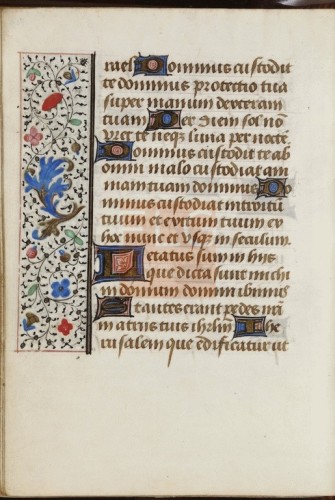 rael Dominus custodit
te dominus protectio tua
super manum dexteram
tuam Per diem sol nō
vret te neqȝ luna per noctē
Dominus custodit te ab
omni malo custodiat ani
mam tuam dominus Do
minus custodiat introitū
tuum et exitum tuum ex
hoc nunc et vsqȝ in seculum
Letatus sum in hijs
que dicta sunt michi
in domum domini ibimus
Stantes erant pedes nr̄i
in atrijs tuis ihrlm̄ Ihe
rusalem que edificatur ut